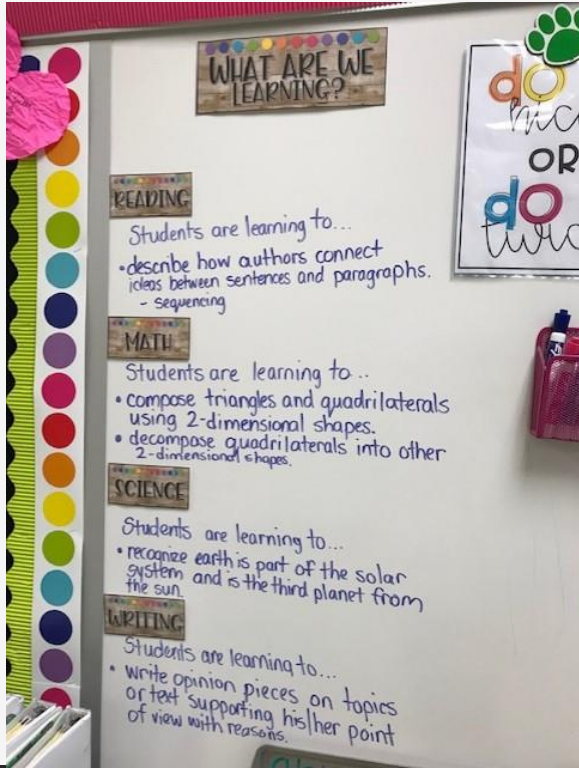 WHAT ARE WE
LEARNING?
do
OR
do
READING
Students are learning to...
• describe how authors connect
ideas between sentences and paragraphs.
- sequencing
MATH
Students are learning to..
• compose triangles and quadrilaterals
using 2-dimensional shapes.
• decompose quadrilaterals into other
2-dimensional shapes.
SCIENCE
Students are learning to...
• recognize earth is part of the solar
system and is the third planet from
the sun.
WRITING
Students are learning to...
• write opinion pieces on topics
or text supporting his/her point
of view with reasons.